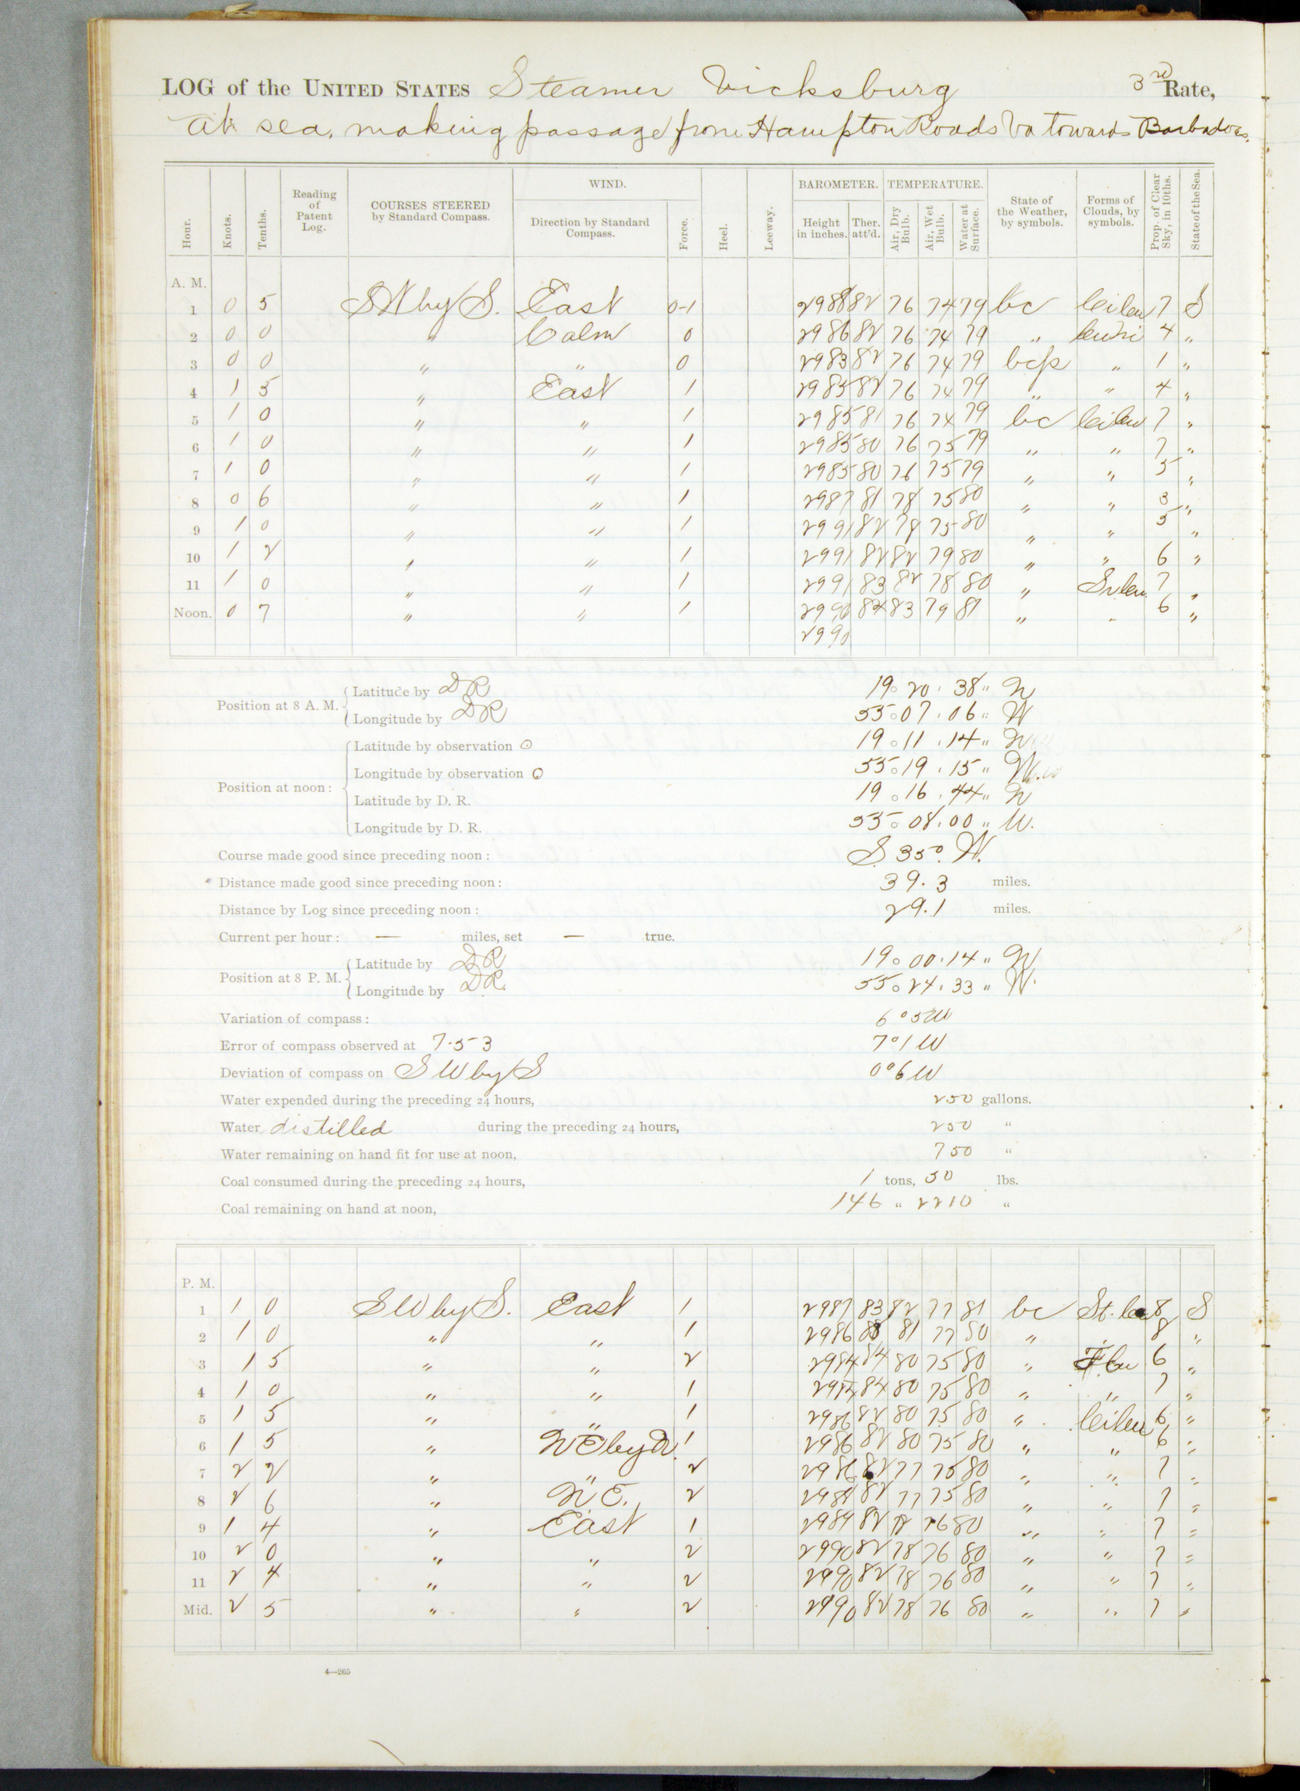 LOG of the UNITED STATES Steamer Vicksburg 3rd Rate,
At sea, making passage from Hampton Roads Va towards Barbadoes.
Hour. Knots. Tenths. Reading of Patent Log. COURSES STEERED by Standard Compass. WIND. Direction by Standard Compass. Force. Heel. Leeway. BAROMETER. Height in inches. Ther. att'd. TEMPERATURE. Air, Dry Bulb. Air, Wet Bulb. Water at Surface. State of the Weather, by symbols. Forms of Clouds, by symbols. Prop. of Clear Sky, in 10ths. State of the Sea.
A. M.
1 0 5 SW by S. East 0-1 2988 82 76 74 79 bc Cicu 7 S
2 0 0 " Calm 0 2986 82 76 74 79 " 4 "
3 0 0 " " 0 2983 82 76 74 79 bcp " 1 "
4 1 5 " East 1 2985 82 76 74 79 " " 4 "
5 1 0 " " 1 2985 81 76 74 79 bc Cicu 7 "
6 1 0 " " 1 2985 80 76 75 79 " " 7 "
7 1 0 " " 1 2985 80 76 75 79 " " 5 "
8 0 6 " " 1 2987 81 78 75 80 " " 3 "
9 1 0 " " 1 2991 82 78 75 80 " " 5 "
10 1 2 " " 1 2991 82 82 79 80 " " 6 "
11 1 0 " " 1 2991 83 82 78 80 " 7 "
Noon. 0 7 " " 1 2990 84 83 79 81 " " 6 "
2990
Position at 8 A. M. Latitude by DR 19° 20' 38" N
Longitude by DR 55° 07' 06" W
Position at noon: Latitude by observation ⊙ 19° 11' 14" N
Longitude by observation O 55° 19' 15" W
Latitude by D. R. 19° 16' 44" N
Longitude by D. R. 55° 08' 00" W.
Course made good since preceding noon: S. 35° W.
Distance made good since preceding noon: 39.3 miles.
Distance by Log since preceding noon: 29.1 miles.
Current per hour: — miles, set — true.
Position at 8 P. M. Latitude by DR 19° 00' 14" N
Longitude by DR. 55° 24' 33" W.
Variation of compass: 6°5W
Error of compass observed at 7-53 7°1W
Deviation of compass on SW by S 0°6W
Water expended during the preceding 24 hours, 250 gallons.
Water distilled during the preceding 24 hours, 250 "
Water remaining on hand fit for use at noon, 750 "
Coal consumed during the preceding 24 hours, 1 tons, 50 lbs.
Coal remaining on hand at noon, 146 " 2210 "
P. M.
1 1 0 SW by S. East 1 2987 83 82 77 81 bc St. Cu 8 S
2 1 0 " " 1 2986 81 77 80 " " 8 "
3 1 5 " " 2 2984 84 80 75 80 " 6 "
4 1 0 " " 1 84 80 75 80 " " 7 "
5 1 5 " " 1 2986 82 80 75 80 " Cicu 6 "
6 1 5 " NE by N. 1 2986 82 80 75 80 " " 6 "
7 2 2 " " 2 2986 82 77 75 80 " " 7 "
8 2 6 " N. E. 2 2988 82 77 75 80 " " 7 "
9 1 4 " East 1 2989 82 76 80 " " 7 "
10 2 0 " " 2 2990 82 78 76 80 " " 7 "
11 2 4 " " 2 2990 82 78 76 80 " " 7 "
Mid. 2 5 " " 2 2990 82 78 76 80 " " 7 "
4—265